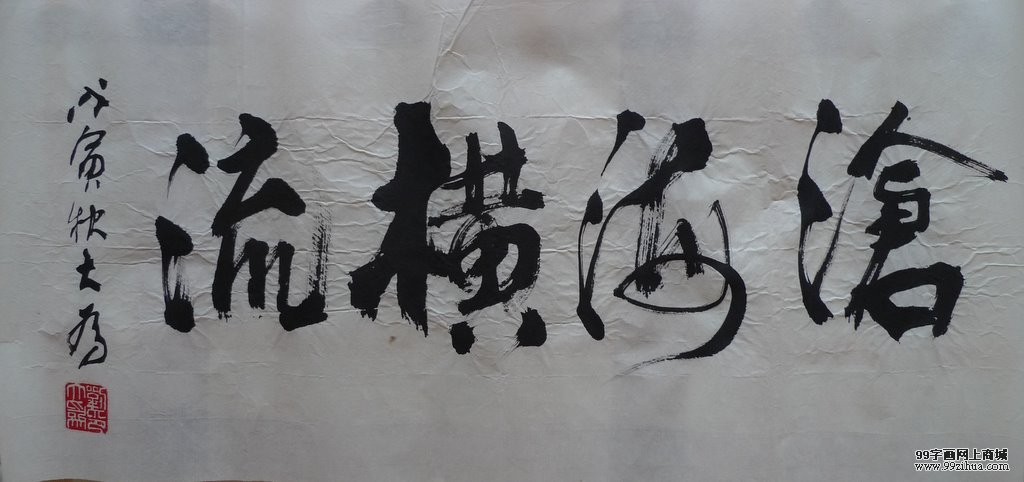 滄海橫流
戊寅秋大为
99字画网上商城
www.99zihua.com